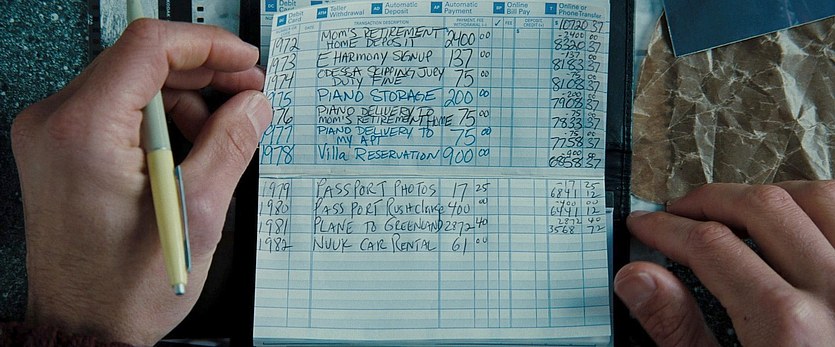 Debit Card
Teller Withdrawal
AD Automatic Deposit
AP Automatic Payment
BP Online Bill Pay
T Online or Phone Transfer
DATE TRANSACTION DESCRIPTION PAYMENT, FEE WITHDRAWAL (-) ✓ FEE DEPOSIT CREDIT (+) $ 10720 37
1972 MOM'S RETIREMENT HOME DEPOSIT 2400 00 -2400 00
8320 37
1973 E HARMONY SIGNUP 137 00 -137 00
8183 37
1974 ODESSA SKIPPING JURY DUTY FINE 75 00 -75 00
8108 37
1975 PIANO STORAGE 200 00 -200 00
7908 37
1976 PIANO DELIVERY TO MOM'S RETIREMENT HOME 75 00 -75 00
7833 37
1977 PIANO DELIVERY TO MY APT 75 00 -75 00
7758 37
1978 Villa RESERVATION 900 00 -900 00
6858 37
1979 PASSPORT PHOTOS 17 25 -17 25
6841 12
1980 PASSPORT RUSH 400 00 -400 00
6441 12
1981 PLANE TO GREENLAND 2872 40 2872 40
3568 72
1982 NUUK CAR RENTAL 61 00